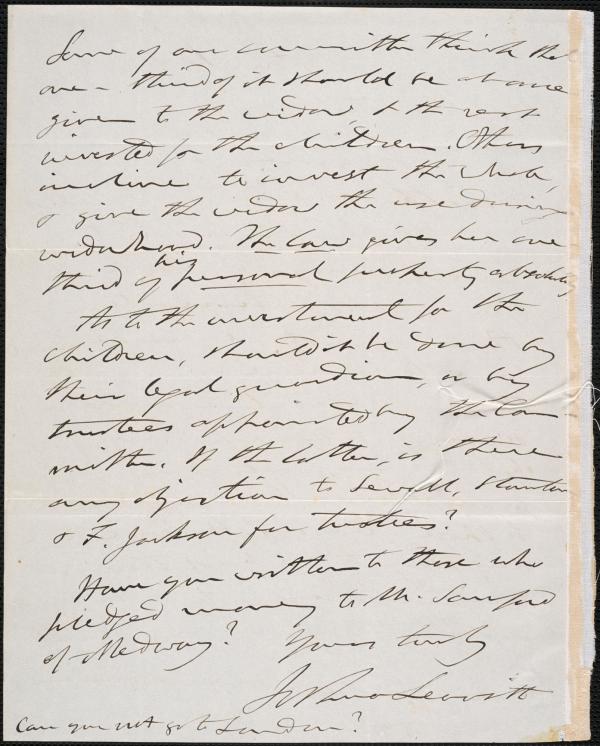 Some of our committee think that
one-third of it should be at once
given to the widow, & the rest
invested for the children. Others
incline to invest the whole,
& give the widow the use during
widowhood. The law gives her one
third of his personal property absolutely
As to the investment for the
children, should it be done by
their legal guardian, or by
trustees appointed by the Com-
mittee. If the latter, is there
any objection to Sewall, Stanton
& F. Jackson for trustees?
Have you written to those who
pledged money to Mr. Sanford
of Medway? Yours truly
Joshua Leavitt
Can you not go to London?